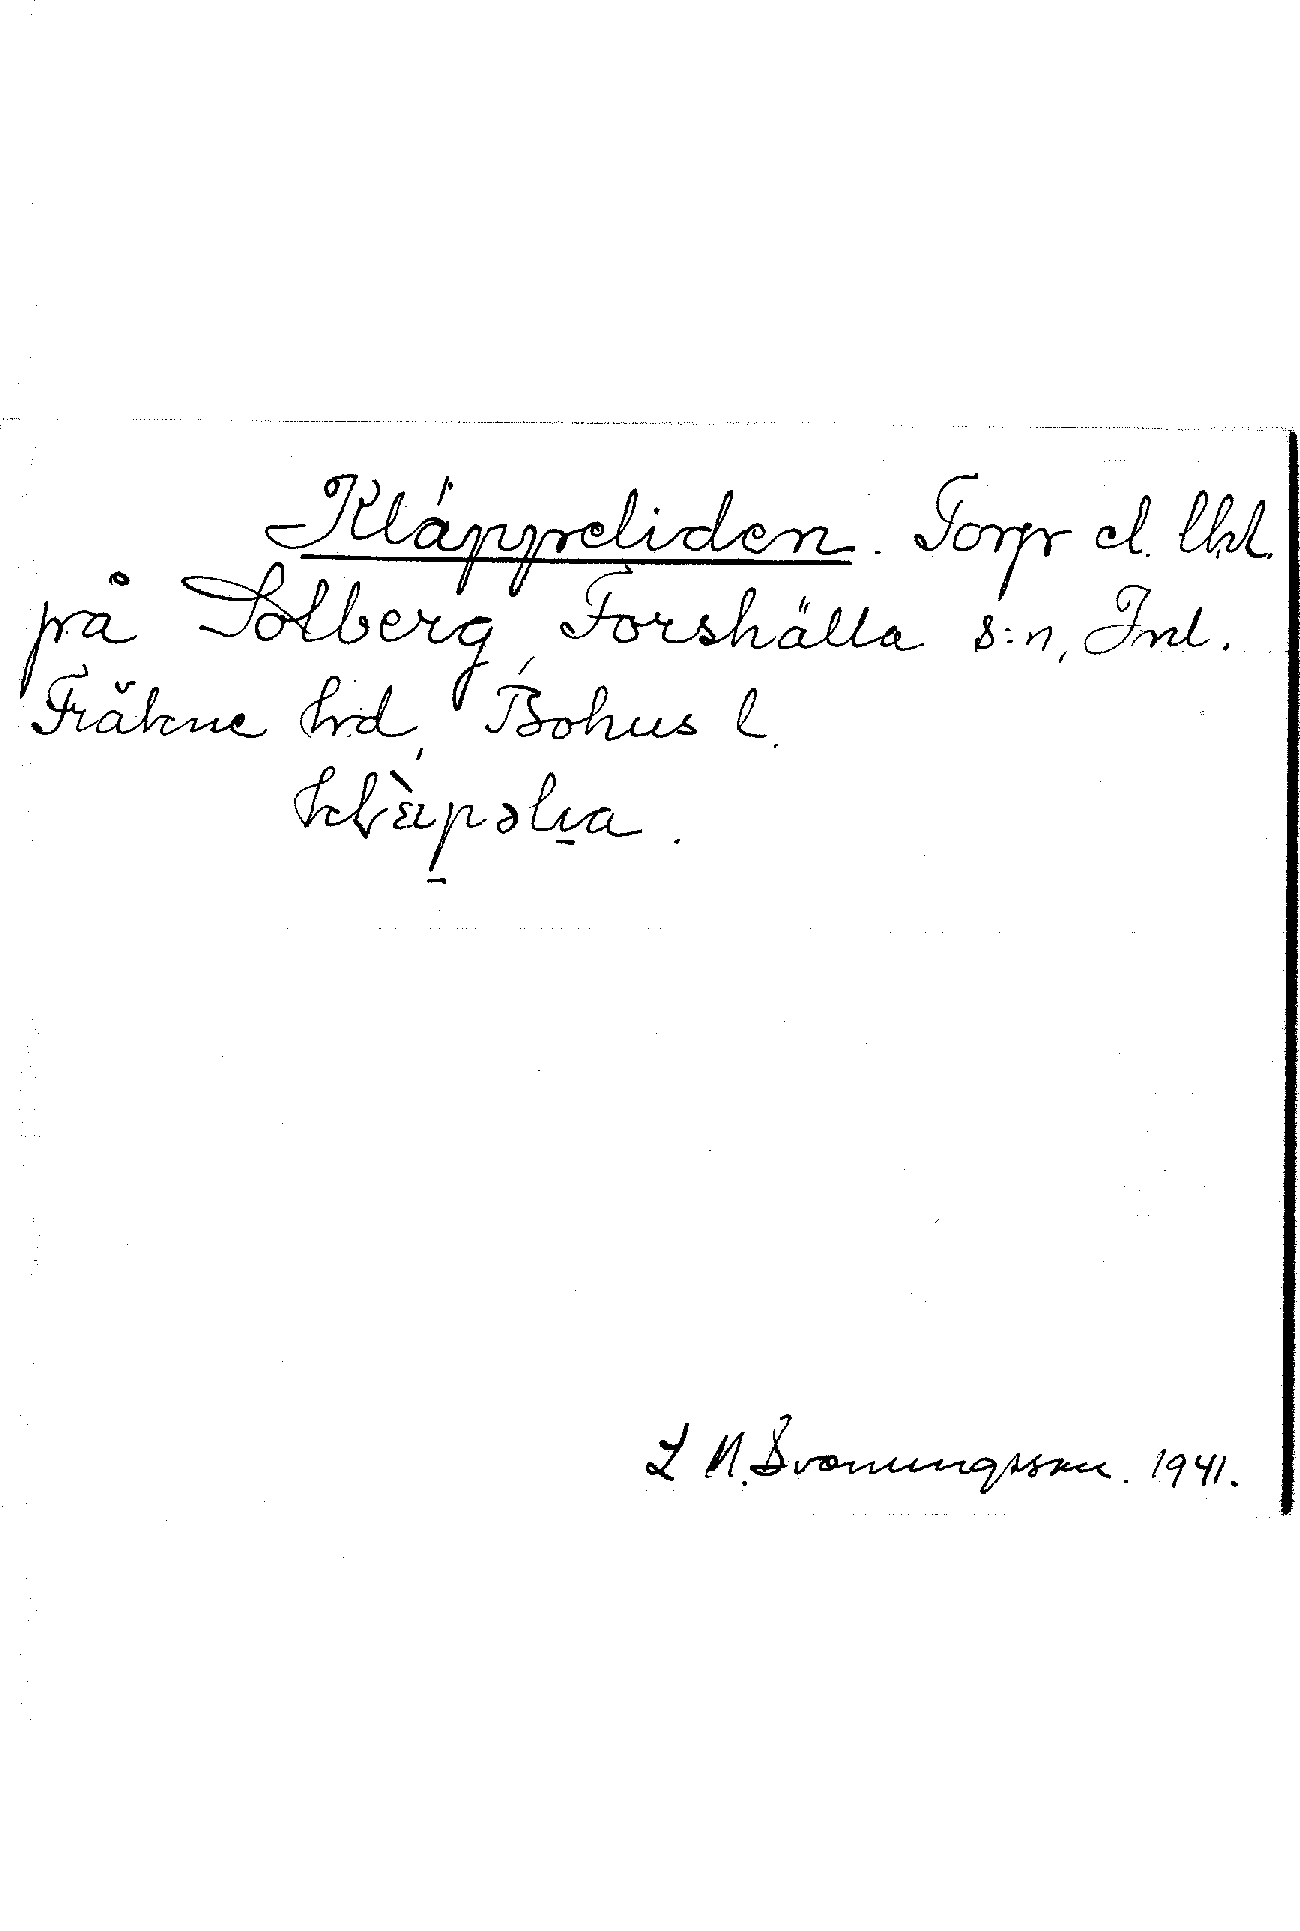 Kläppeliden. Torp el. lht.
på Solberg, Forshälla s:n, Inl.
Fräkne hd, Bohus l.
L N. Svanungsson. 1941.